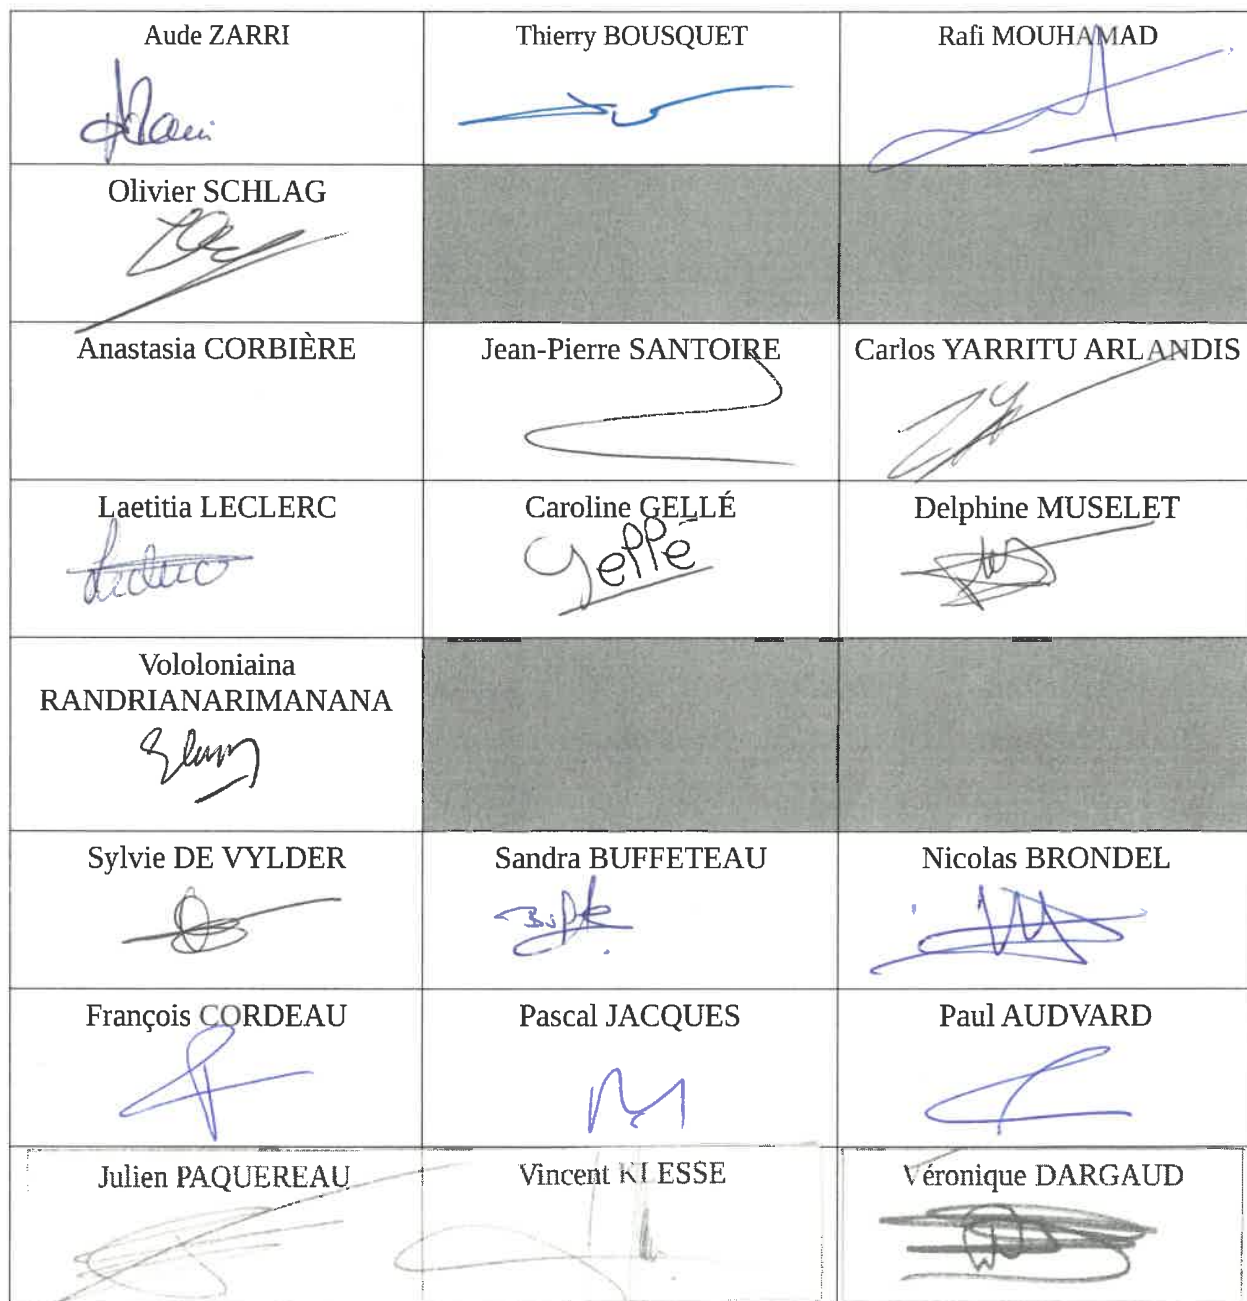 Aude ZARRI
Thierry BOUSQUET
Rafi MOUHAMAD
Olivier SCHLAG
Anastasia CORBIÈRE
Jean-Pierre SANTOIRE
Carlos YARRITU ARLANDIS
Laetitia LECLERC
Caroline GELLÉ
Delphine MUSELET
Gellé
Vololoniaina
RANDRIANARIMANANA
Sylvie DE VYLDER
Sandra BUFFETEAU
Nicolas BRONDEL
François CORDEAU
Pascal JACQUES
Paul AUDVARD
Julien PAQUEREAU
Vincent KLESSE
Véronique DARGAUD